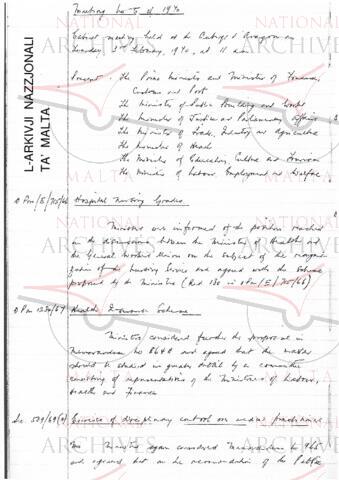 Meeting No 5 of 1970
Cabinet meeting held at the Auberge d'Aragon on
Tuesday, 3rd February, 1970, at 11 a.m.
Present : The Prime Minister and Minister of Finance,
Customs and Port
The Minister of Public Building and Works
The Minister of Justice and Parliamentary Affairs
The Minister of Trade, Industry and Agriculture
The Minister of Health
The Minister of Education, Culture and Tourism
The Minister of Labour, Employment and Welfare
Hospital Nursing Grades
Ministers were informed of the position reached
in the discussions between the Ministry of Health and
the General Workers Union on the subject of the reorgani-
zation of the Nursing Service and agreed with the scheme
proposed by the Ministry (Red 130 in OPM/E/75/66)
Health Insurance Scheme
Ministers considered further the proposal in
Memorandum No 8640 and agreed that the matter
should be studied in greater detail by a committee
consisting of representatives of the Ministers of Labour,
Health and Finance.
Exercise of disciplinary control on medical practitioners
The Ministers again considered Memorandum No
and agreed that on the recommendation of the Public
L-ARKIVJI NAZZJONALI
TA' MALTA
NATIONAL
ARCHIVES
MALTA